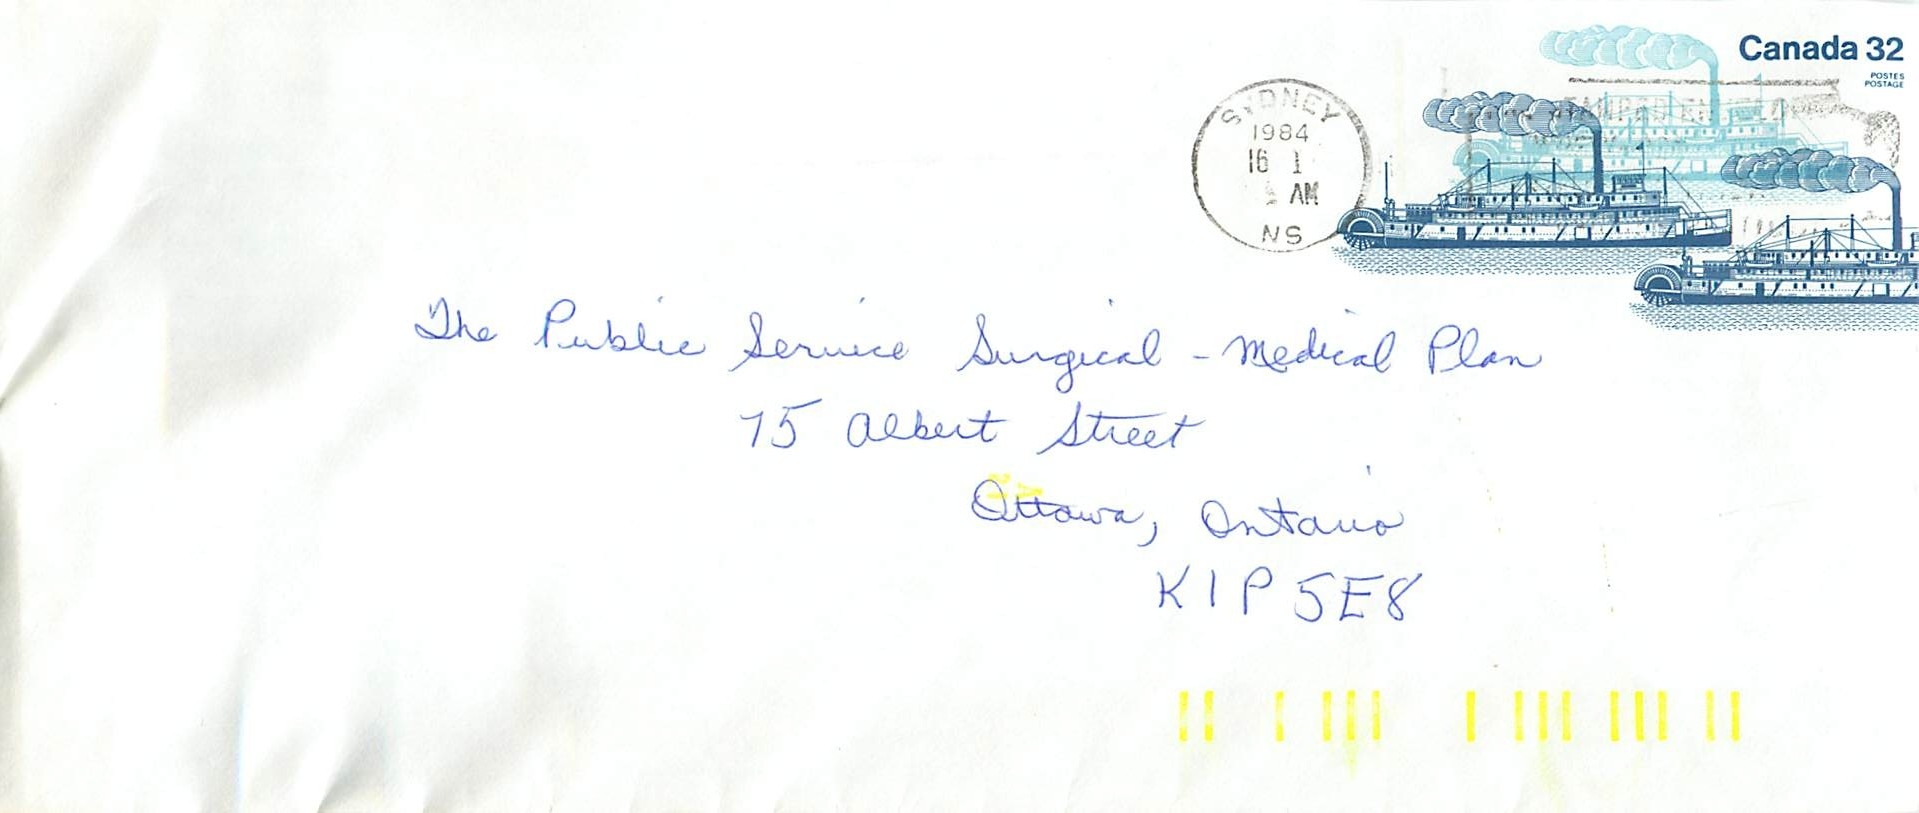 Canada 32
POSTES
POSTAGE
SYDNEY
1984
16 1
AM
NS
STAMPED
The Public Service Surgical - Medical Plan
75 Albert Street
Ottawa, Ontario
K1P 5E8